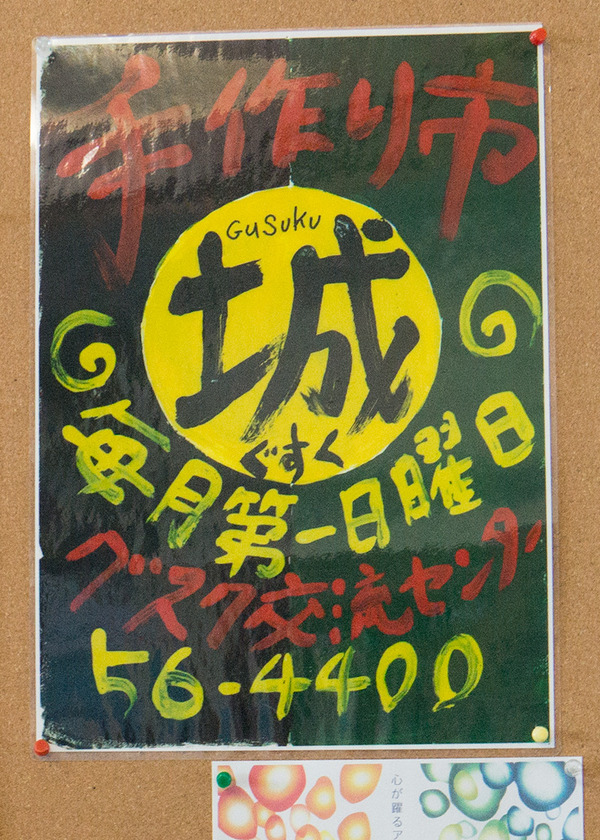 手作り市
GUSUKU
城
ぐすく
毎月第一日曜日
グスク交流センター
56-4400
心が躍るア